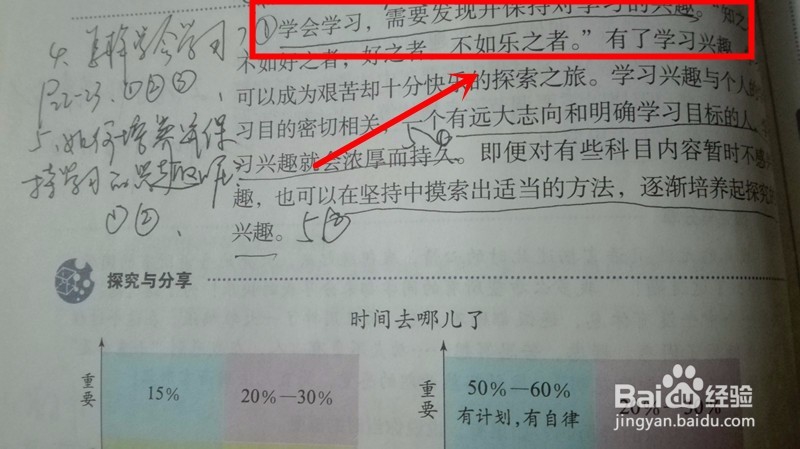 ①学会学习，需要发现并保持对学习的兴趣。“知之
不如好之者，好之者，不如乐之者。”有了学习兴趣
可以成为艰苦却十分快乐的探索之旅。学习兴趣与个人的
习目的密切相关，一个有远大志向和明确学习目标的人，
习兴趣就会浓厚而持久。即便对有些科目内容暂时不感
趣，也可以在坚持中摸索出适当的方法，逐渐培养起探究
兴趣。5②
4、怎样学会学习？
P22-23、①②③、
5、如何培养并保
持学习的兴趣呢
①②、
5①
探究与分享
时间去哪儿了
重要
15%
20%—30%
重要
50%—60%
有计划，有自律
20%—30%
Baidu经验
jingyan.baidu.com